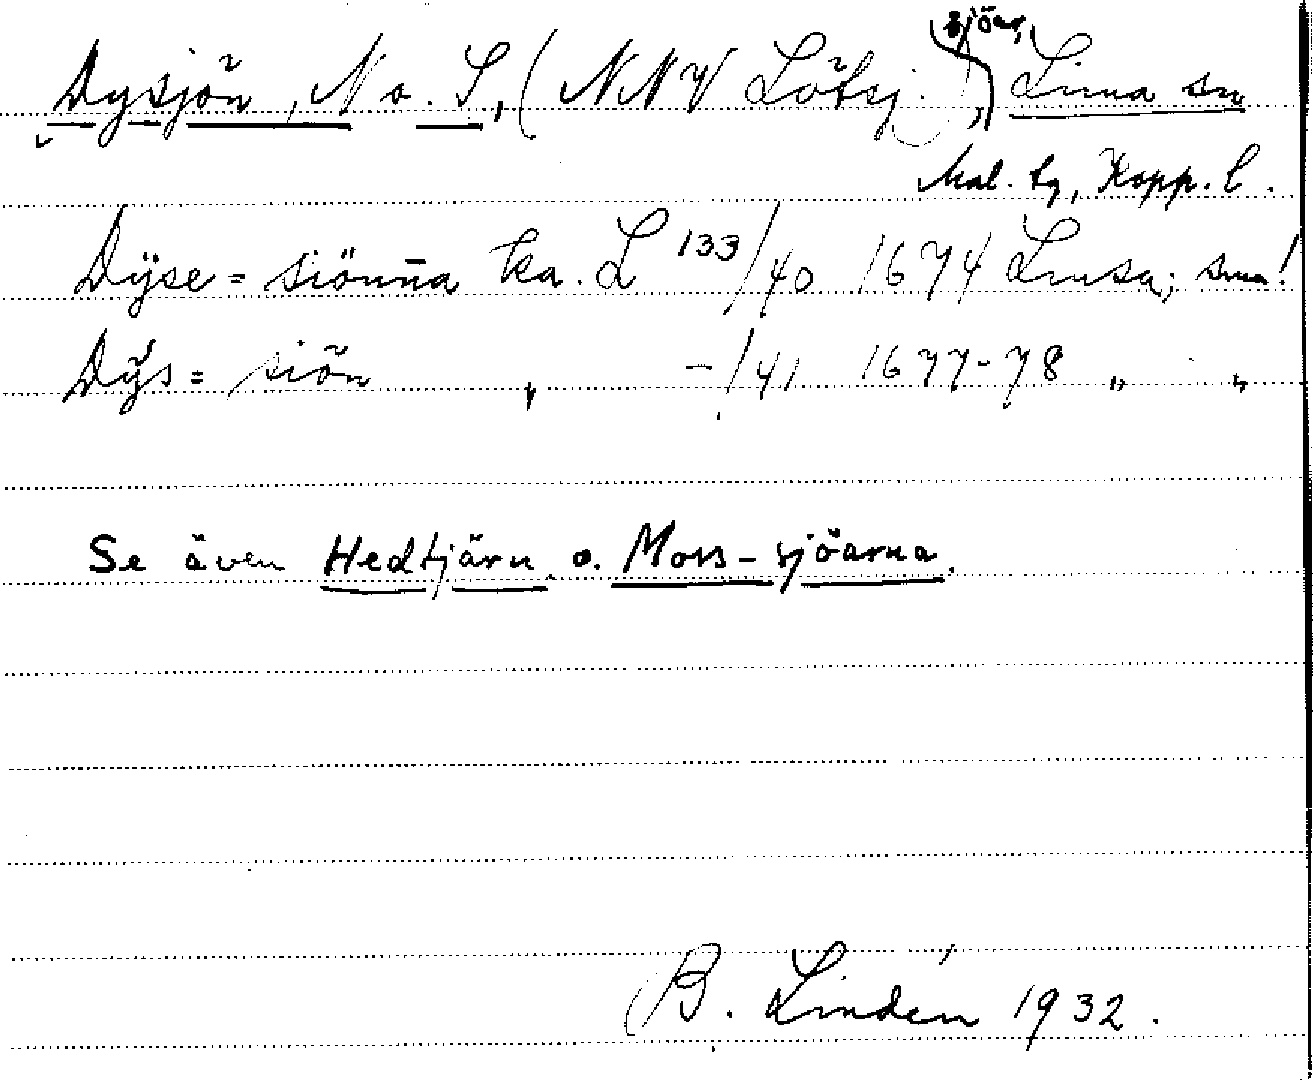 Dysjön, N o. S, (NNV Lötsj.), sjöar, Lima sn
Mal. tg, Kopp. l.
Dÿse = siönna ka. L 133/40 1674 Limsa; snn!
Dÿs = siön „ -/41 1677-78 „ „
Se även Hedtjärn o. Moss-sjöarna.
B. Lindén 1932.